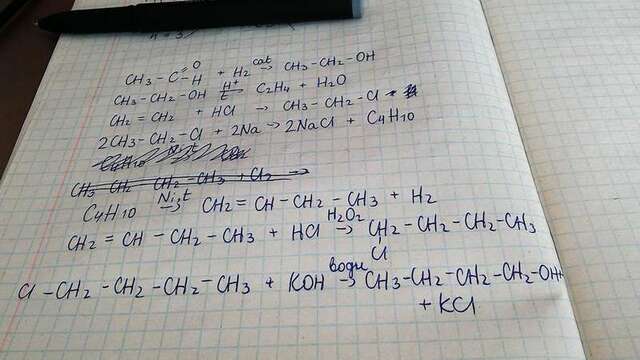 CH3-C=O
H + H2 cat→ CH3-CH2-OH
CH3-CH2-OH H+ t→ C2H4 + H2O
CH2=CH2 + HCl → CH3-CH2-Cl
2CH3-CH2-Cl + 2Na → 2NaCl + C4H10
CH3 CH2 CH2-CH3 + Cl2 →
C4H10 Ni,t→ CH2=CH-CH2-CH3 + H2
CH2=CH-CH2-CH3 + HCl H2O2→ CH2-CH2-CH2-CH3
Cl
Cl-CH2-CH2-CH2-CH3 + KOH водн→ CH3-CH2-CH2-CH2-OH
+ KCl